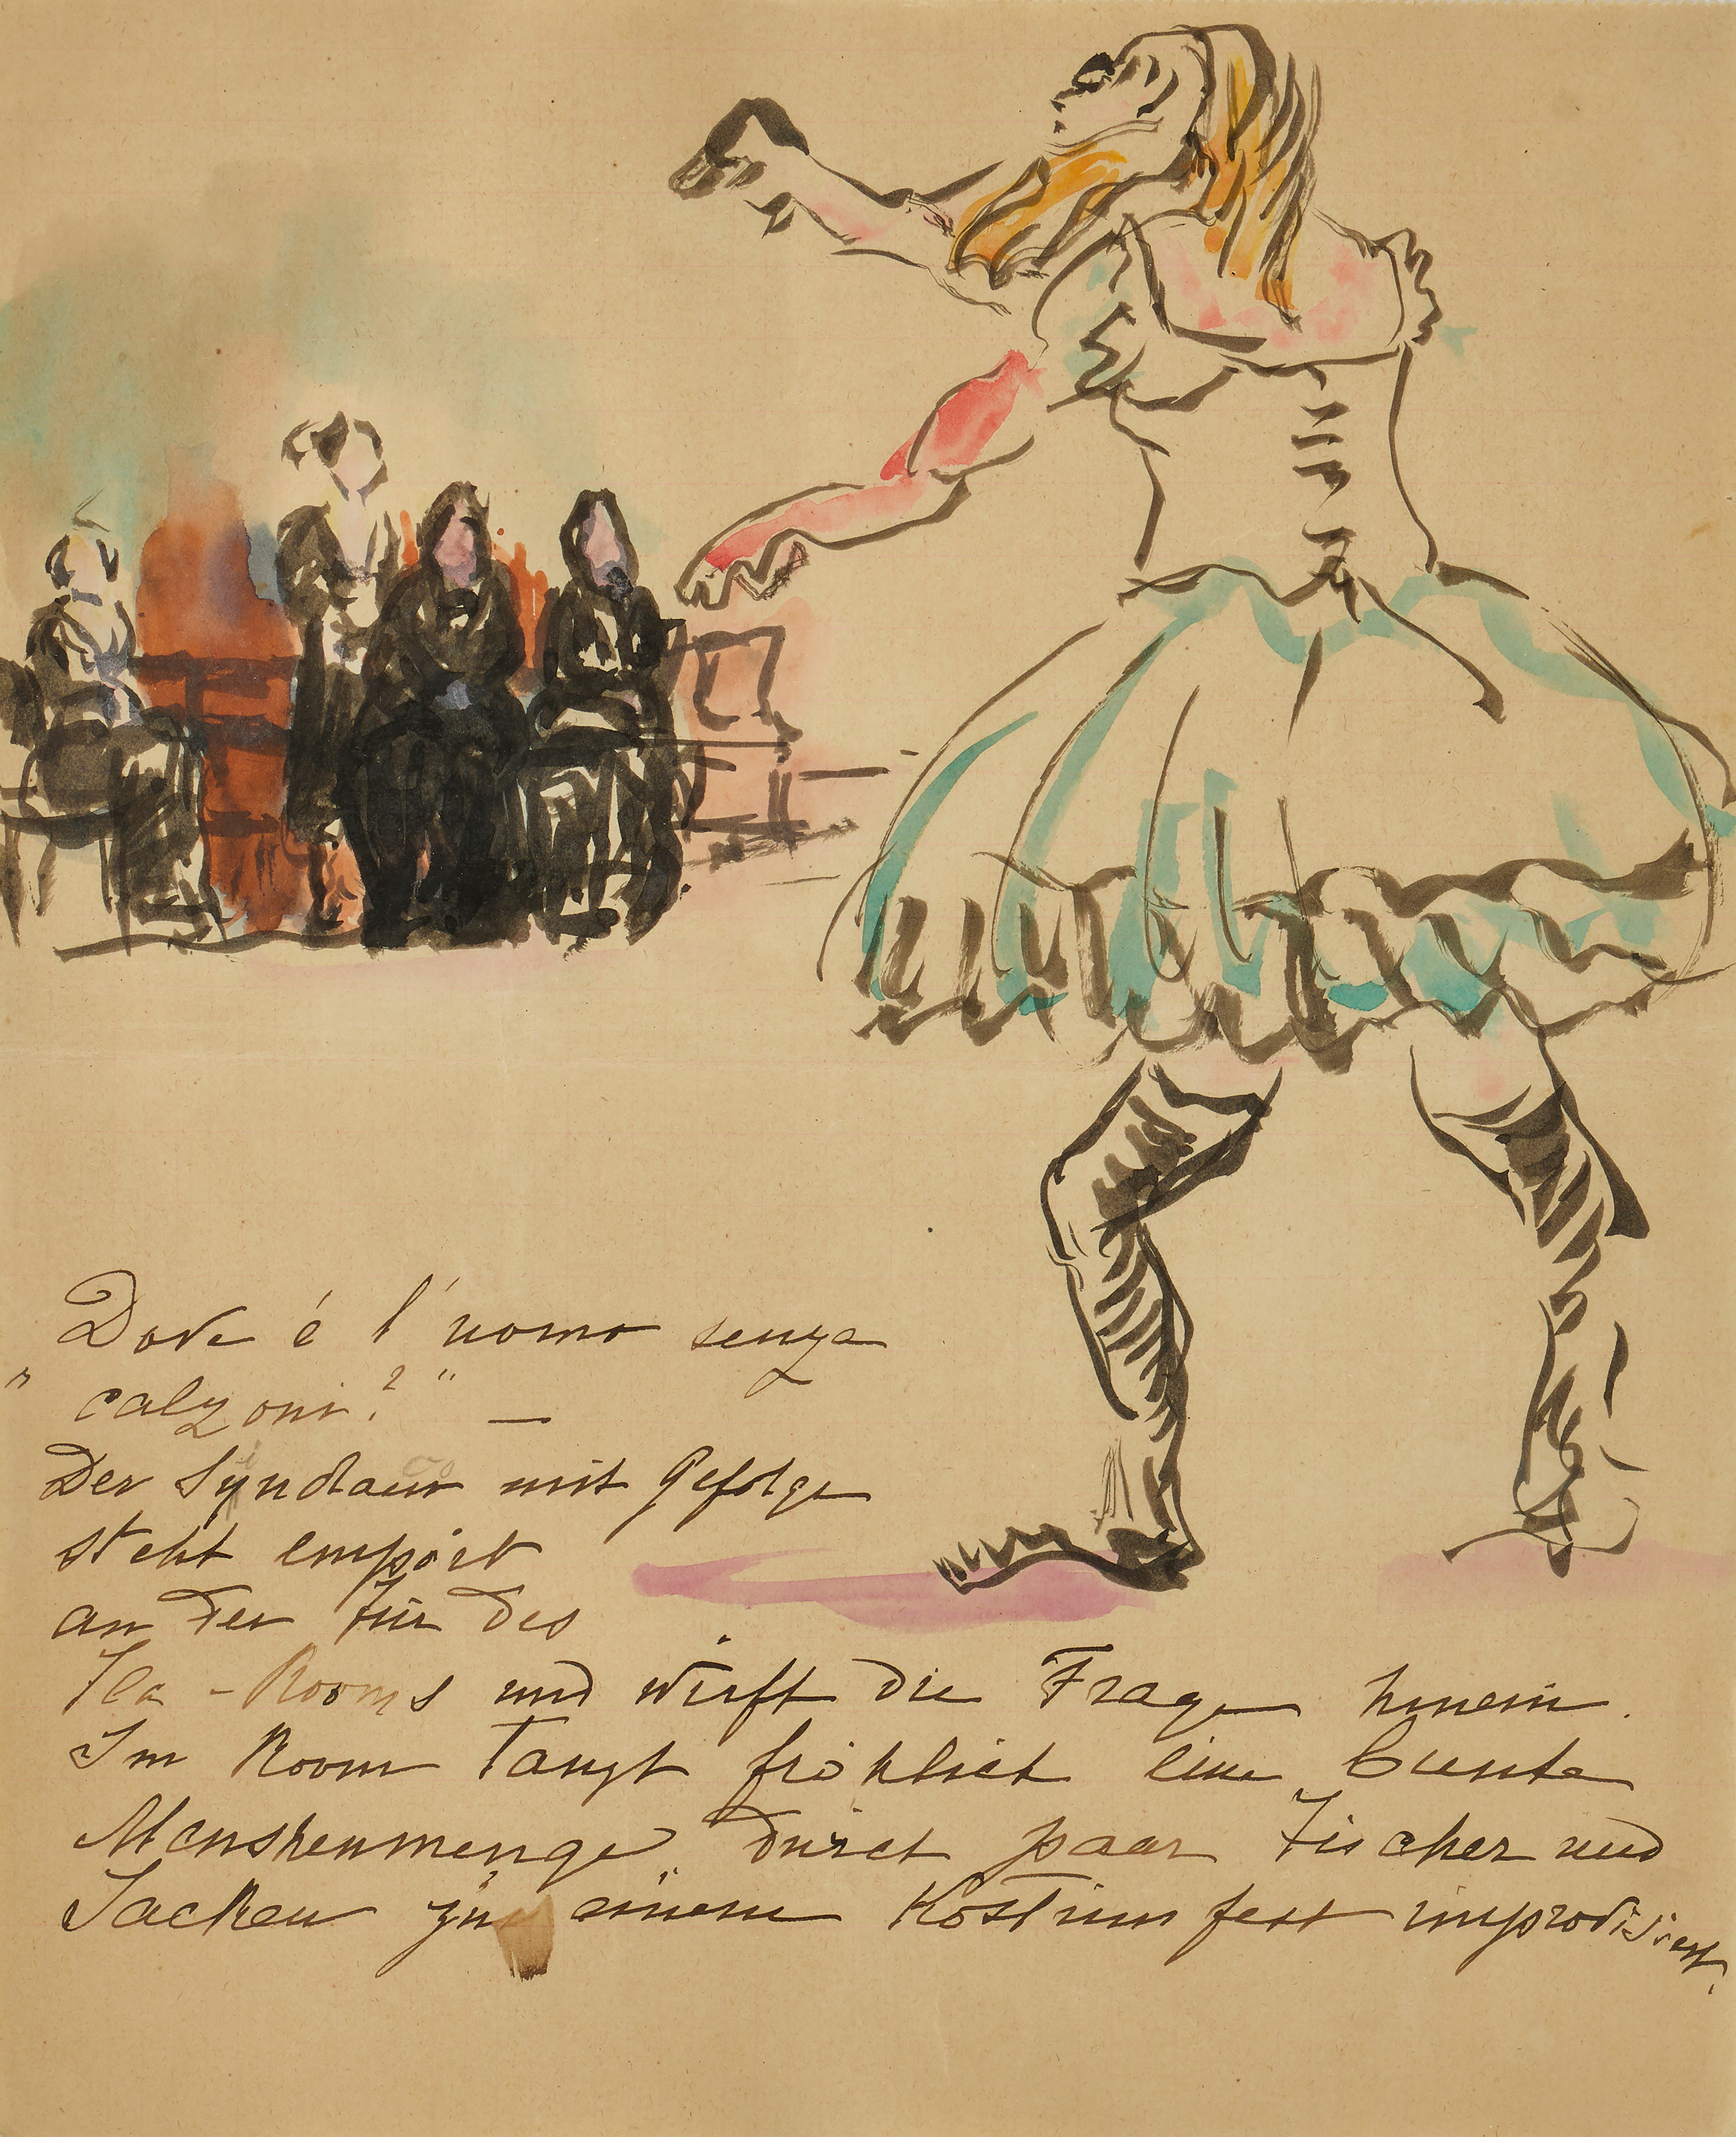 Dove é l'uomo senza
" calzoni? " —
Der Syndacus mit Gefolge
steht empört
an der Tür des
Tea-Rooms und wirft die Frage hinein.
Im Room tanzt fröhlich eine bunte
Menskenmenge, durch paar Tücher und
Jacken zu einem Kostümfest improvisiert.